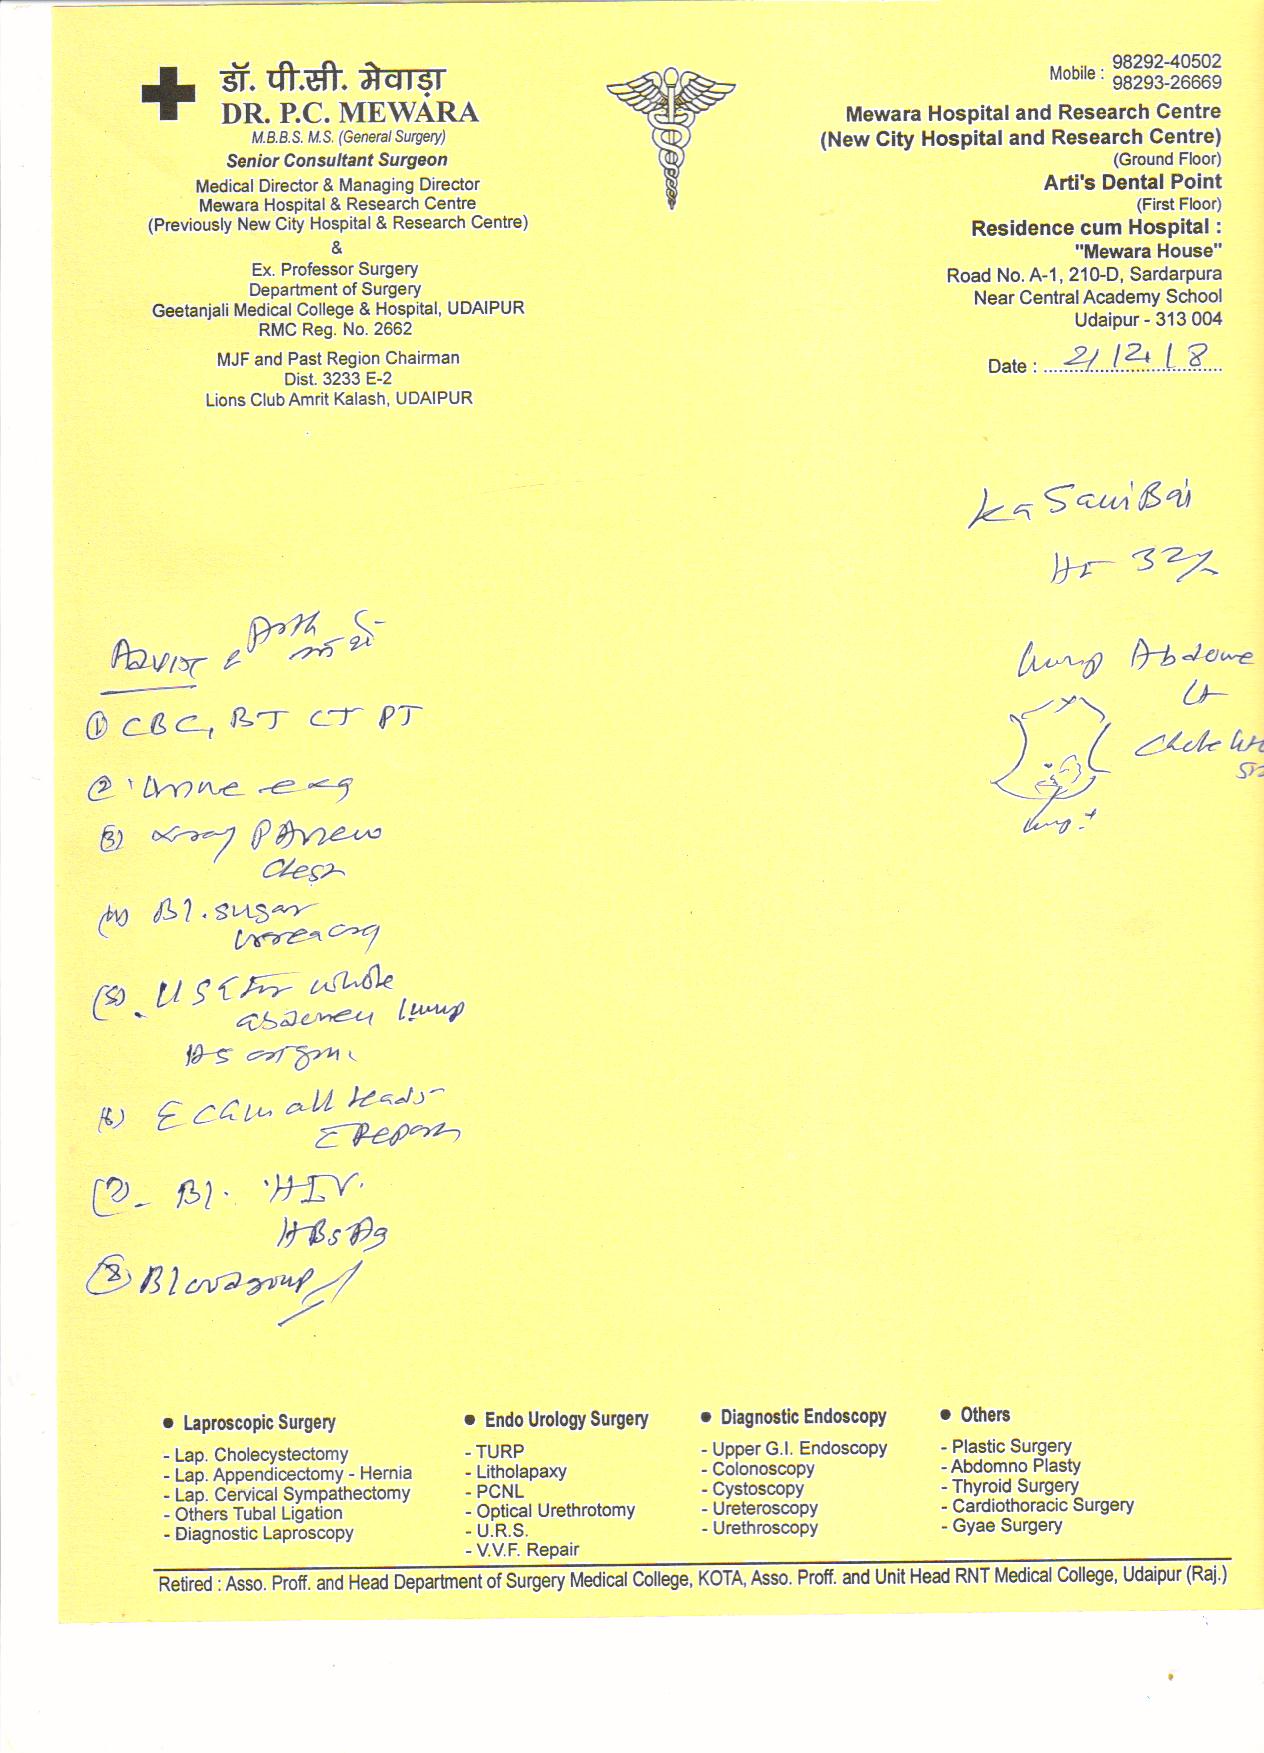 डॉ. पी.सी. मेवाड़ा
DR. P.C. MEWARA
M.B.B.S. M.S. (General Surgery)
Senior Consultant Surgeon
Medical Director & Managing Director
Mewara Hospital & Research Centre
(Previously New City Hospital & Research Centre)
&
Ex. Professor Surgery
Department of Surgery
Geetanjali Medical College & Hospital, UDAIPUR
RMC Reg. No. 2662
MJF and Past Region Chairman
Dist. 3233 E-2
Lions Club Amrit Kalash, UDAIPUR
Mobile : 98292-40502
98293-26669
Mewara Hospital and Research Centre
(New City Hospital and Research Centre)
(Ground Floor)
Arti's Dental Point
(First Floor)
Residence cum Hospital :
"Mewara House"
Road No. A-1, 210-D, Sardarpura
Near Central Academy School
Udaipur - 313 004
Date :
Bai
32
Lump Abdome
Lump +
① CBC, BT CT PT
②
(3) xray PA view
Chest
(4) Bl. sugar
(5) whole
abdomen lump
(6) ECG in all leads
Report
(7) Bl. HIV.
HBsAg
(8) Bloodgroup
● Laproscopic Surgery
- Lap. Cholecystectomy
- Lap. Appendicectomy - Hernia
- Lap. Cervical Sympathectomy
- Others Tubal Ligation
- Diagnostic Laproscopy
● Endo Urology Surgery
- TURP
- Litholapaxy
- PCNL
- Optical Urethrotomy
- U.R.S.
- V.V.F. Repair
● Diagnostic Endoscopy
- Upper G.I. Endoscopy
- Colonoscopy
- Cystoscopy
- Ureteroscopy
- Urethroscopy
● Others
- Plastic Surgery
- Abdomno Plasty
- Thyroid Surgery
- Cardiothoracic Surgery
- Gyae Surgery
Retired : Asso. Proff. and Head Department of Surgery Medical College, KOTA, Asso. Proff. and Unit Head RNT Medical College, Udaipur (Raj.)